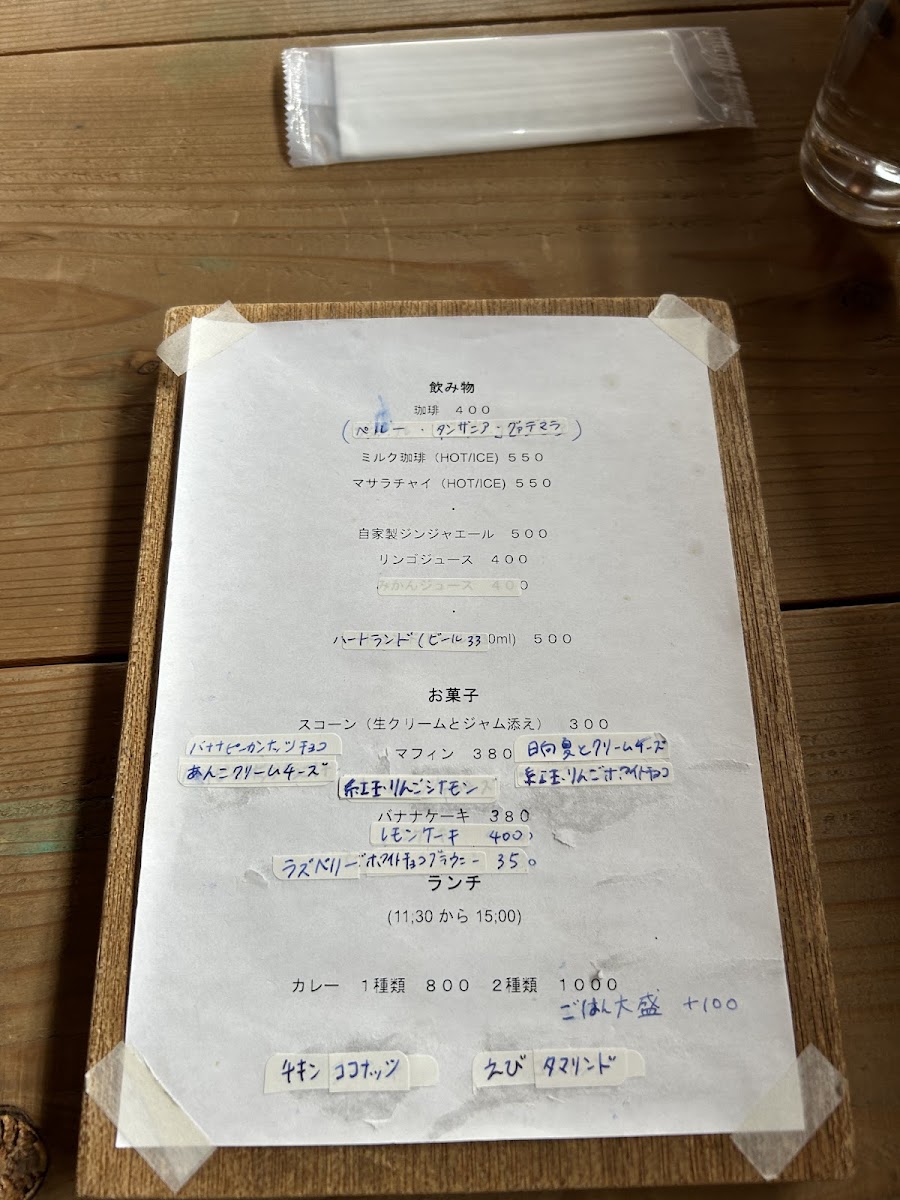 飲み物
珈琲 400
(ペルー・タンザニア・グァテマラ)
ミルク珈琲（HOT/ICE) 550
マサラチャイ（HOT/ICE) 550
・
自家製ジンジャエール 500
リンゴジュース 400
みかんジュース 400
・
ハートランド(ビール330ml) 500
お菓子
スコーン（生クリームとジャム添え） 300
バナナピーカンナッツチョコ マフィン 380 日向夏とクリームチーズ
あんこクリームチーズ 紅玉りんごシナモン 紅玉・りんごホワイトチョコ
バナナケーキ 380
レモンケーキ 400
ラズベリーホワイトチョコブラウニー 350
ランチ
(11,30 から 15;00)
カレー 1種類 800 2種類 1000
ごはん大盛 +100
チキン ココナッツ えび タマリンド